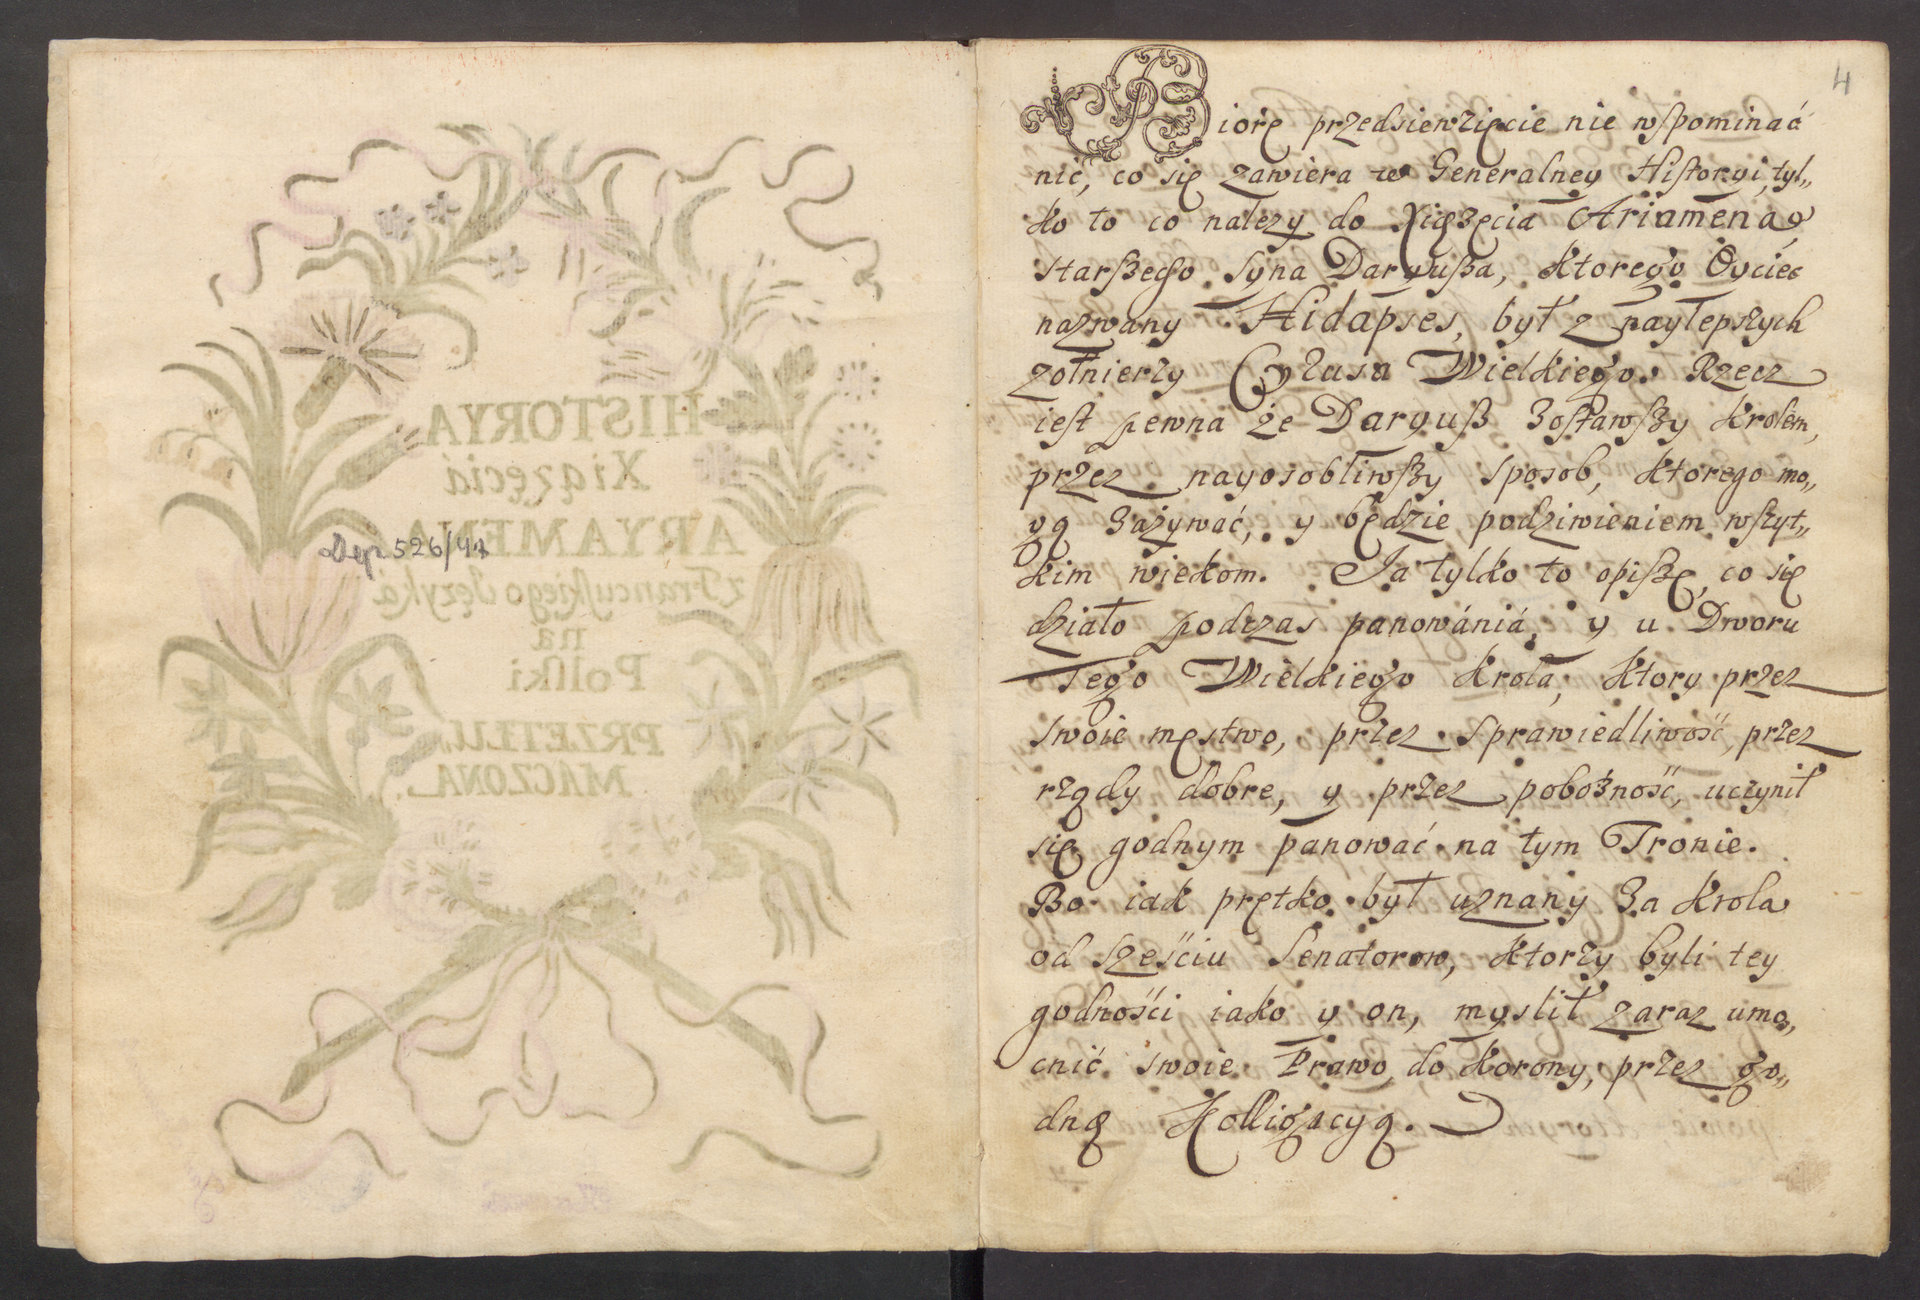 HISTORYA
Xiążęciá
ARYAMENA
z Francuſkiego Języka
na
Polſki
PRZETŁU„
MACZONA.
Dep 526/47
4
Biorę przedsiewzięcie nie wſpomináć
nić, co się zawiera w Generalney Hiſtoryi, tyl„
ko to co nalezy do Xiązęcia Ariamena,
starſzego Syna Daryuſza, Ktorego Oyciec
nazwany Hidapses, był z naylepszych
zołnierzy Cyrusa Wielkiego. Rzecz
ieſt pewna że Daryuſz Zoſtawſzy Krolem,
przez nayosobliwſzy sposob, Ktorego mo„
gą Zażywáć, y będzie podziwieniem wszyt„
kim wiekom. Ja tylko to opiſzę, co się
dziáło podczas panowániá, y u Dworu
Tego Wielkiego Krola, Ktory przez
swoie męstwo, przez sprawiedliwość, przez
rządy dobre, y przez pobożność, uczynił
się godnym panować na tym Tronie.
Bo iak prętko był uznany Za Krola
od sześciu Senatorow, Ktorzy byli tey
godności iako y on, myslił zaraz umo„
cnić swoie Prawo do Korony, przez go„
dną Kolligácyą.